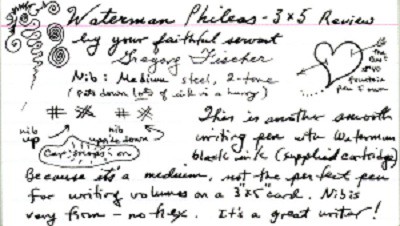 Waterman Phileas - 3x5 Review
by your faithful servant
Gregory Fischer
Nib: Medium steel, 2-tone
(puts down lots of ink in a hurry)
is
the best
fountain
pen I own
nib up
nib upside down
Cap: Snaps on
This is another smooth
writing pen with Waterman
black ink (supplied cartridge)
Because it's a medium, not the perfect pen
for writing volumes on a 3"x5" card. Nib is
very firm - no flex. It's a great writer!